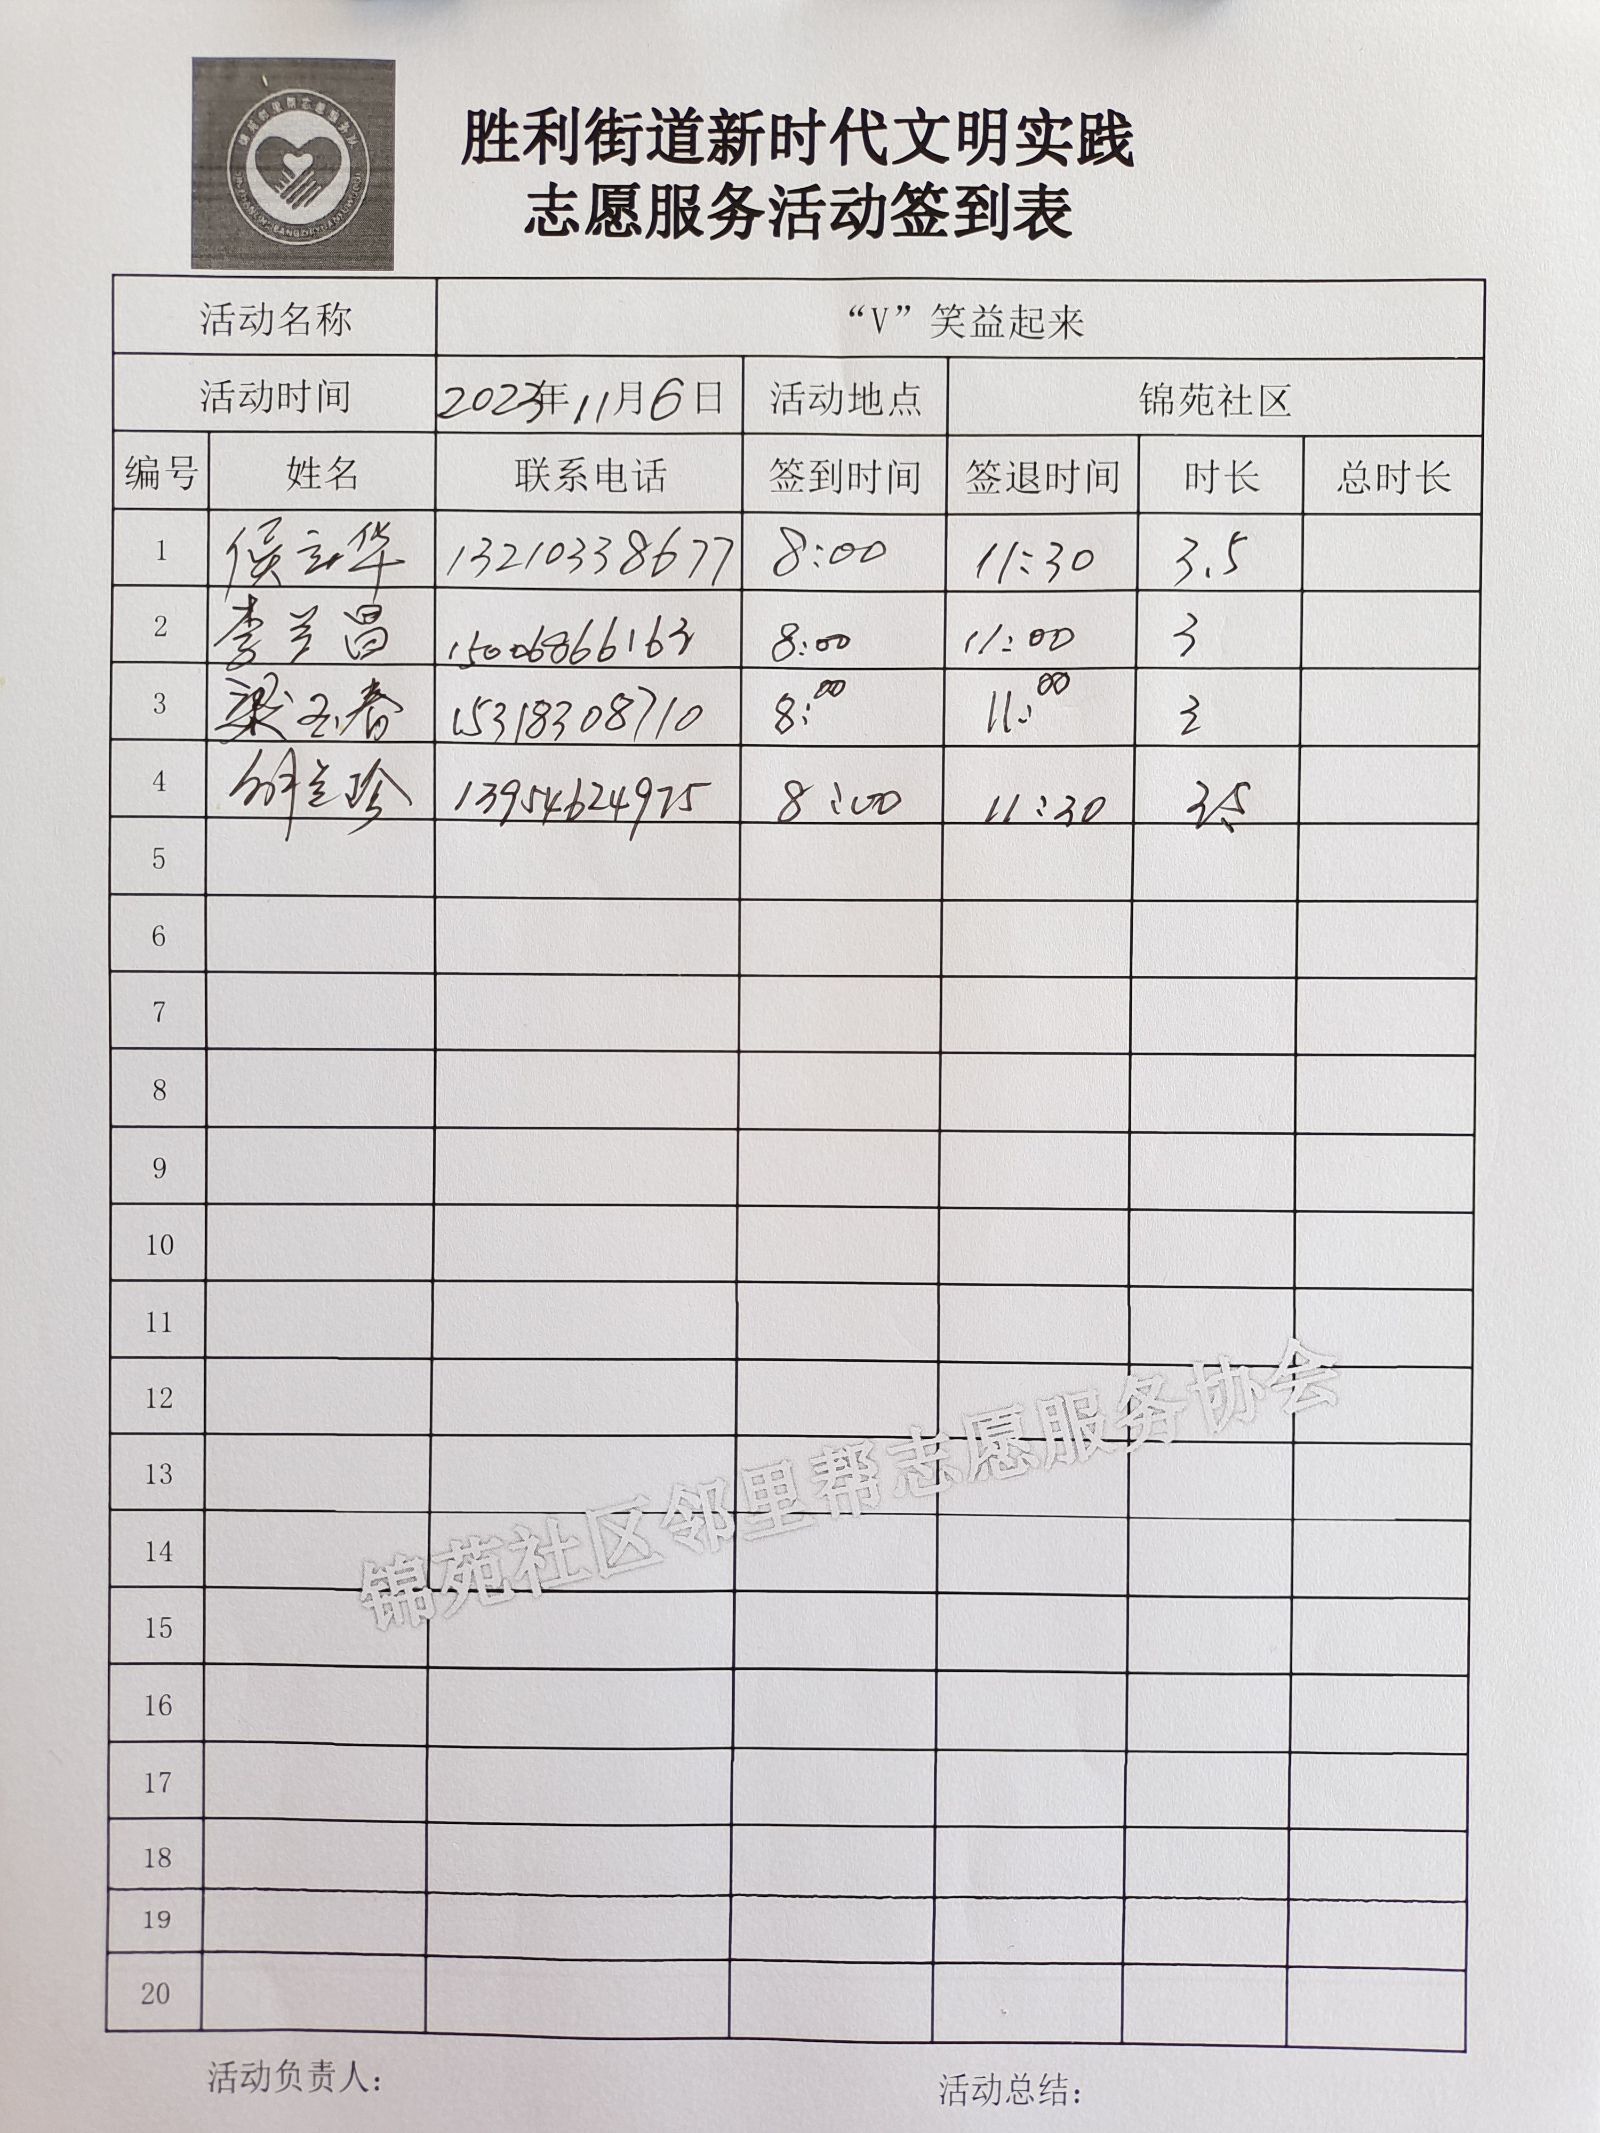 锦苑邻里帮志愿服务队
胜利街道新时代文明实践
志愿服务活动签到表
活动名称 “V”笑益起来
活动时间 2023年11月6日 活动地点 锦苑社区
编号 姓名 联系电话 签到时间 签退时间 时长 总时长
1 侯立华 13210338677 8:00 11:30 3.5
2 李兰昌 15006866163 8:00 11:00 3
3 梁玉春 15318308710 8:00 11:00 3
4 珍 13954624975 8:00 11:30 3.5
5
6
7
8
9
10
11
12
13
14
15
16
17
18
19
20
锦苑社区邻里帮志愿服务协会
活动负责人: 活动总结: